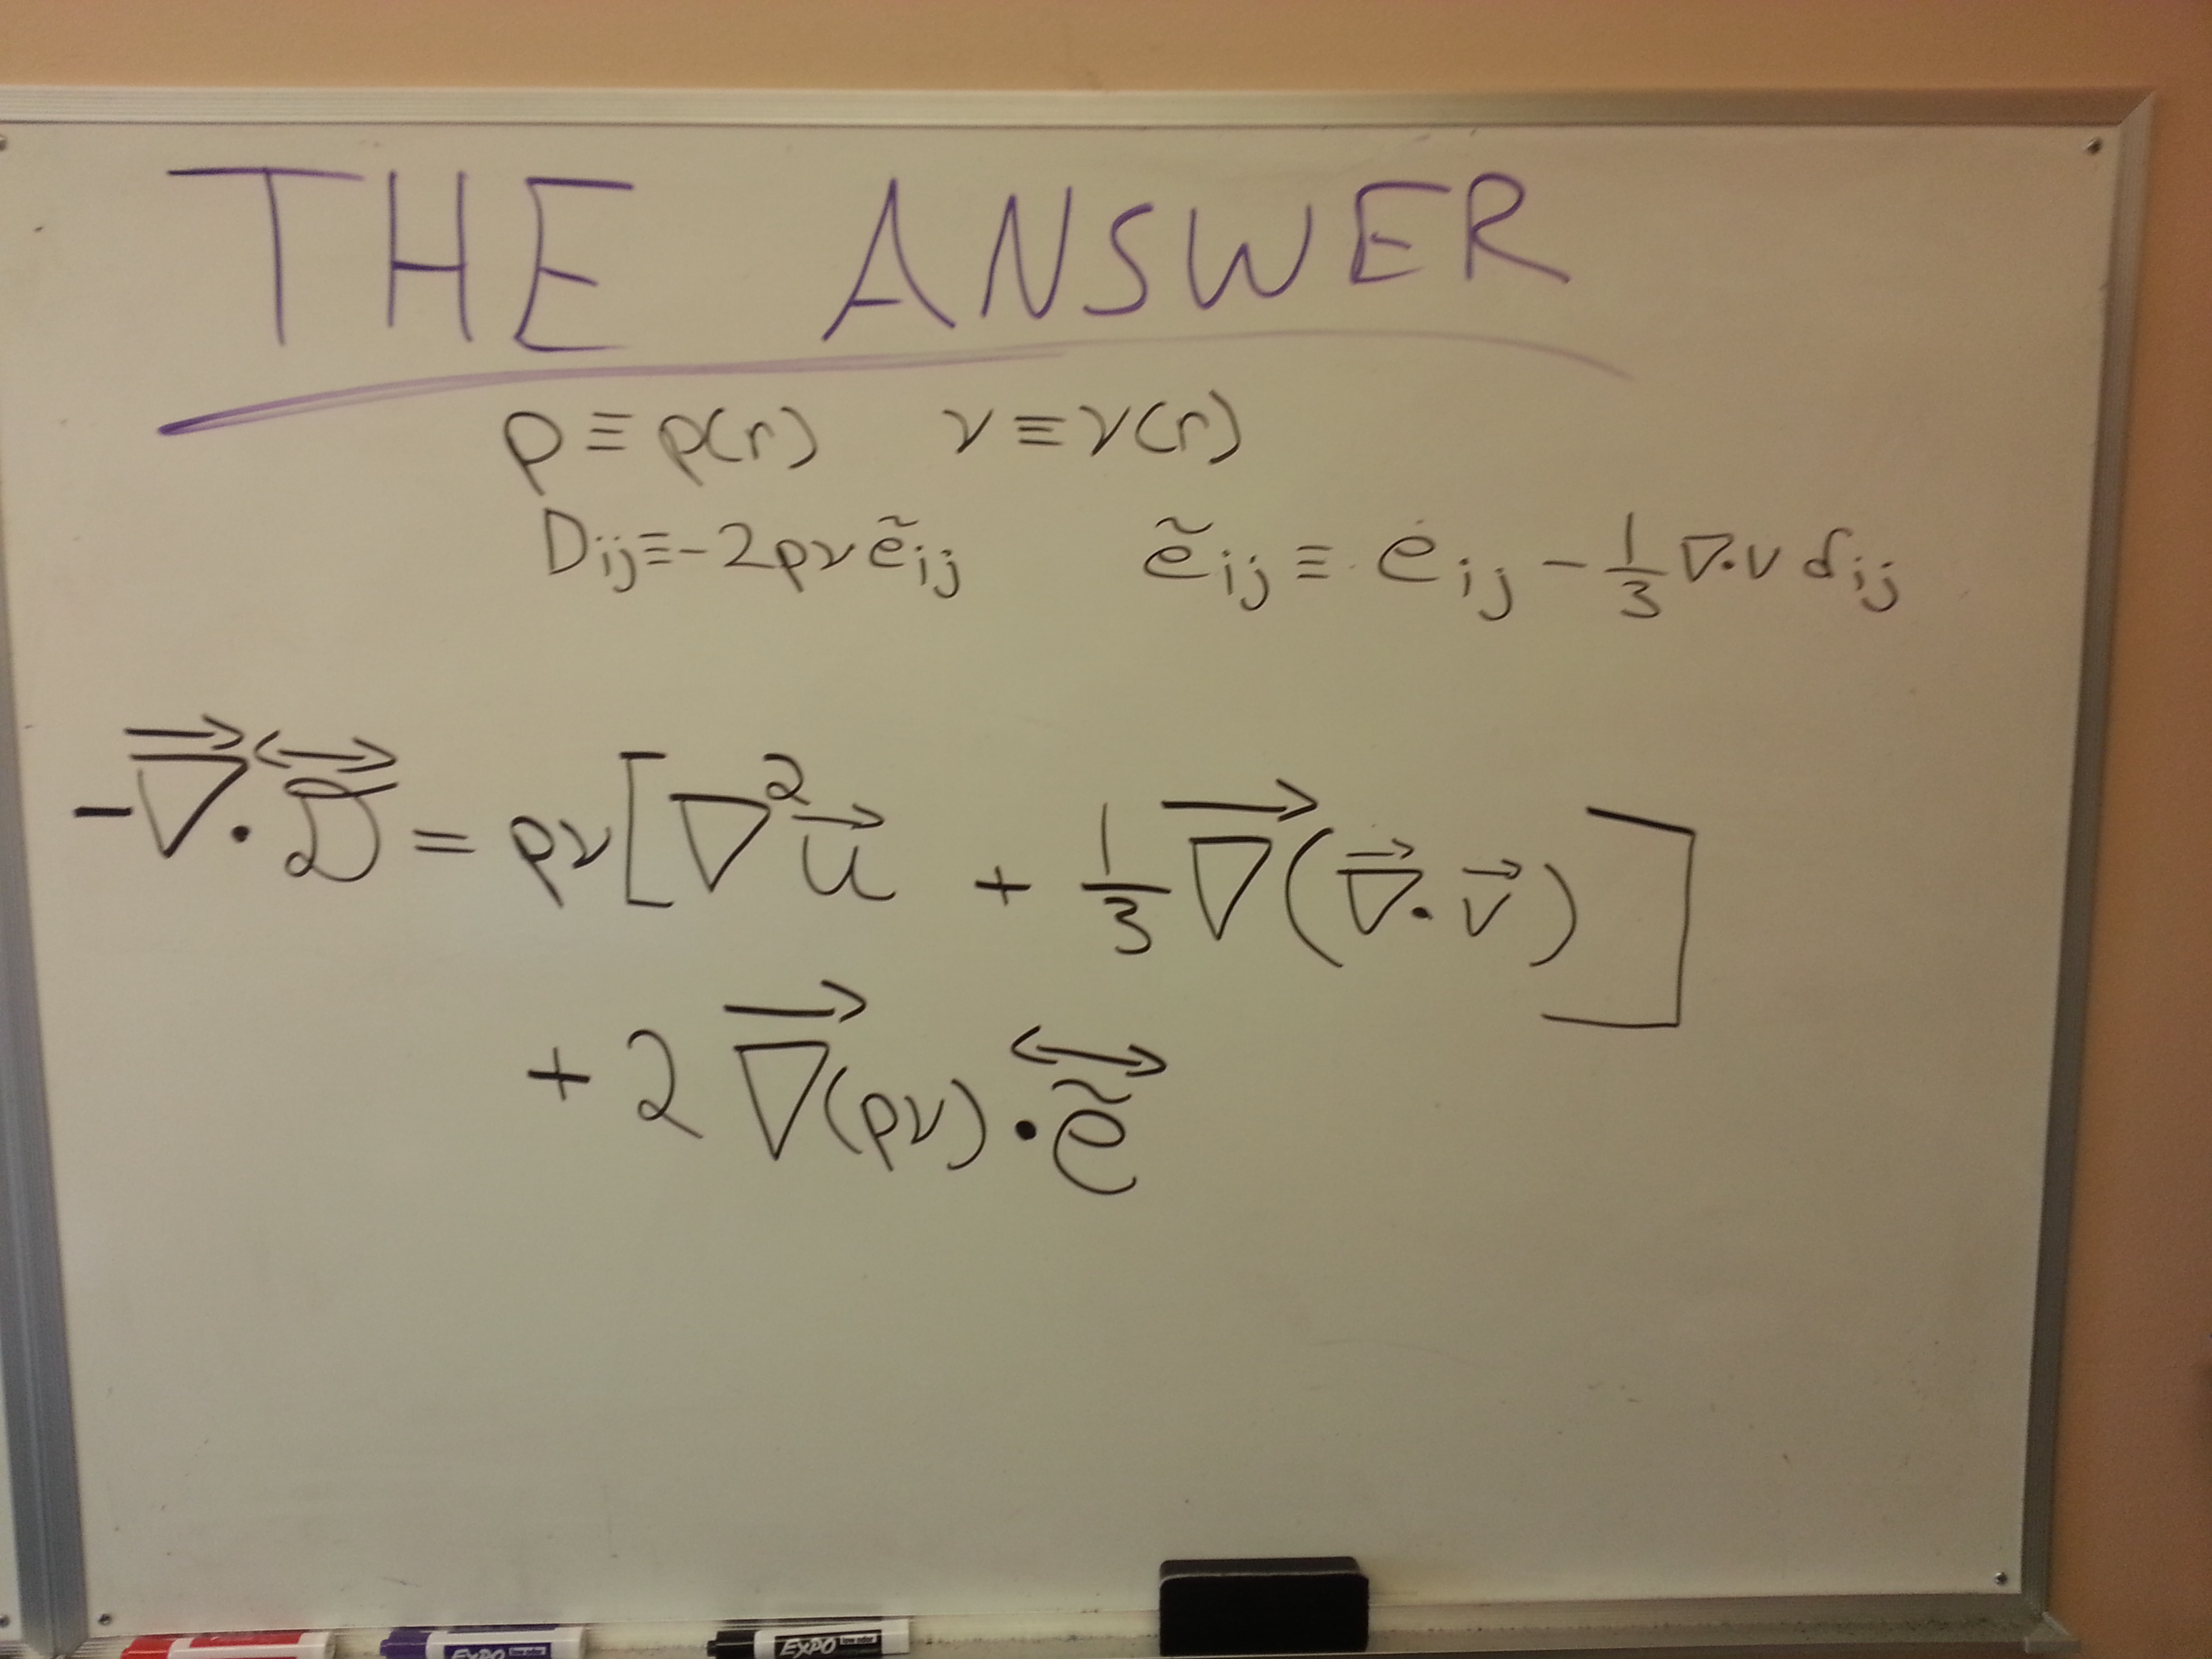 THE ANSWER
ρ ≡ ρ(r) ν ≡ ν(r)
Dij ≡ -2ρν ẽij ẽij ≡ eij - 1/3 ∇·v δij
-∇⃗·D⃡ = ρν[∇²u⃗ + 1/3 ∇⃗(∇⃗·v⃗)]
+ 2 ∇⃗(ρν)·ẽ⃡
EXPO EXPO